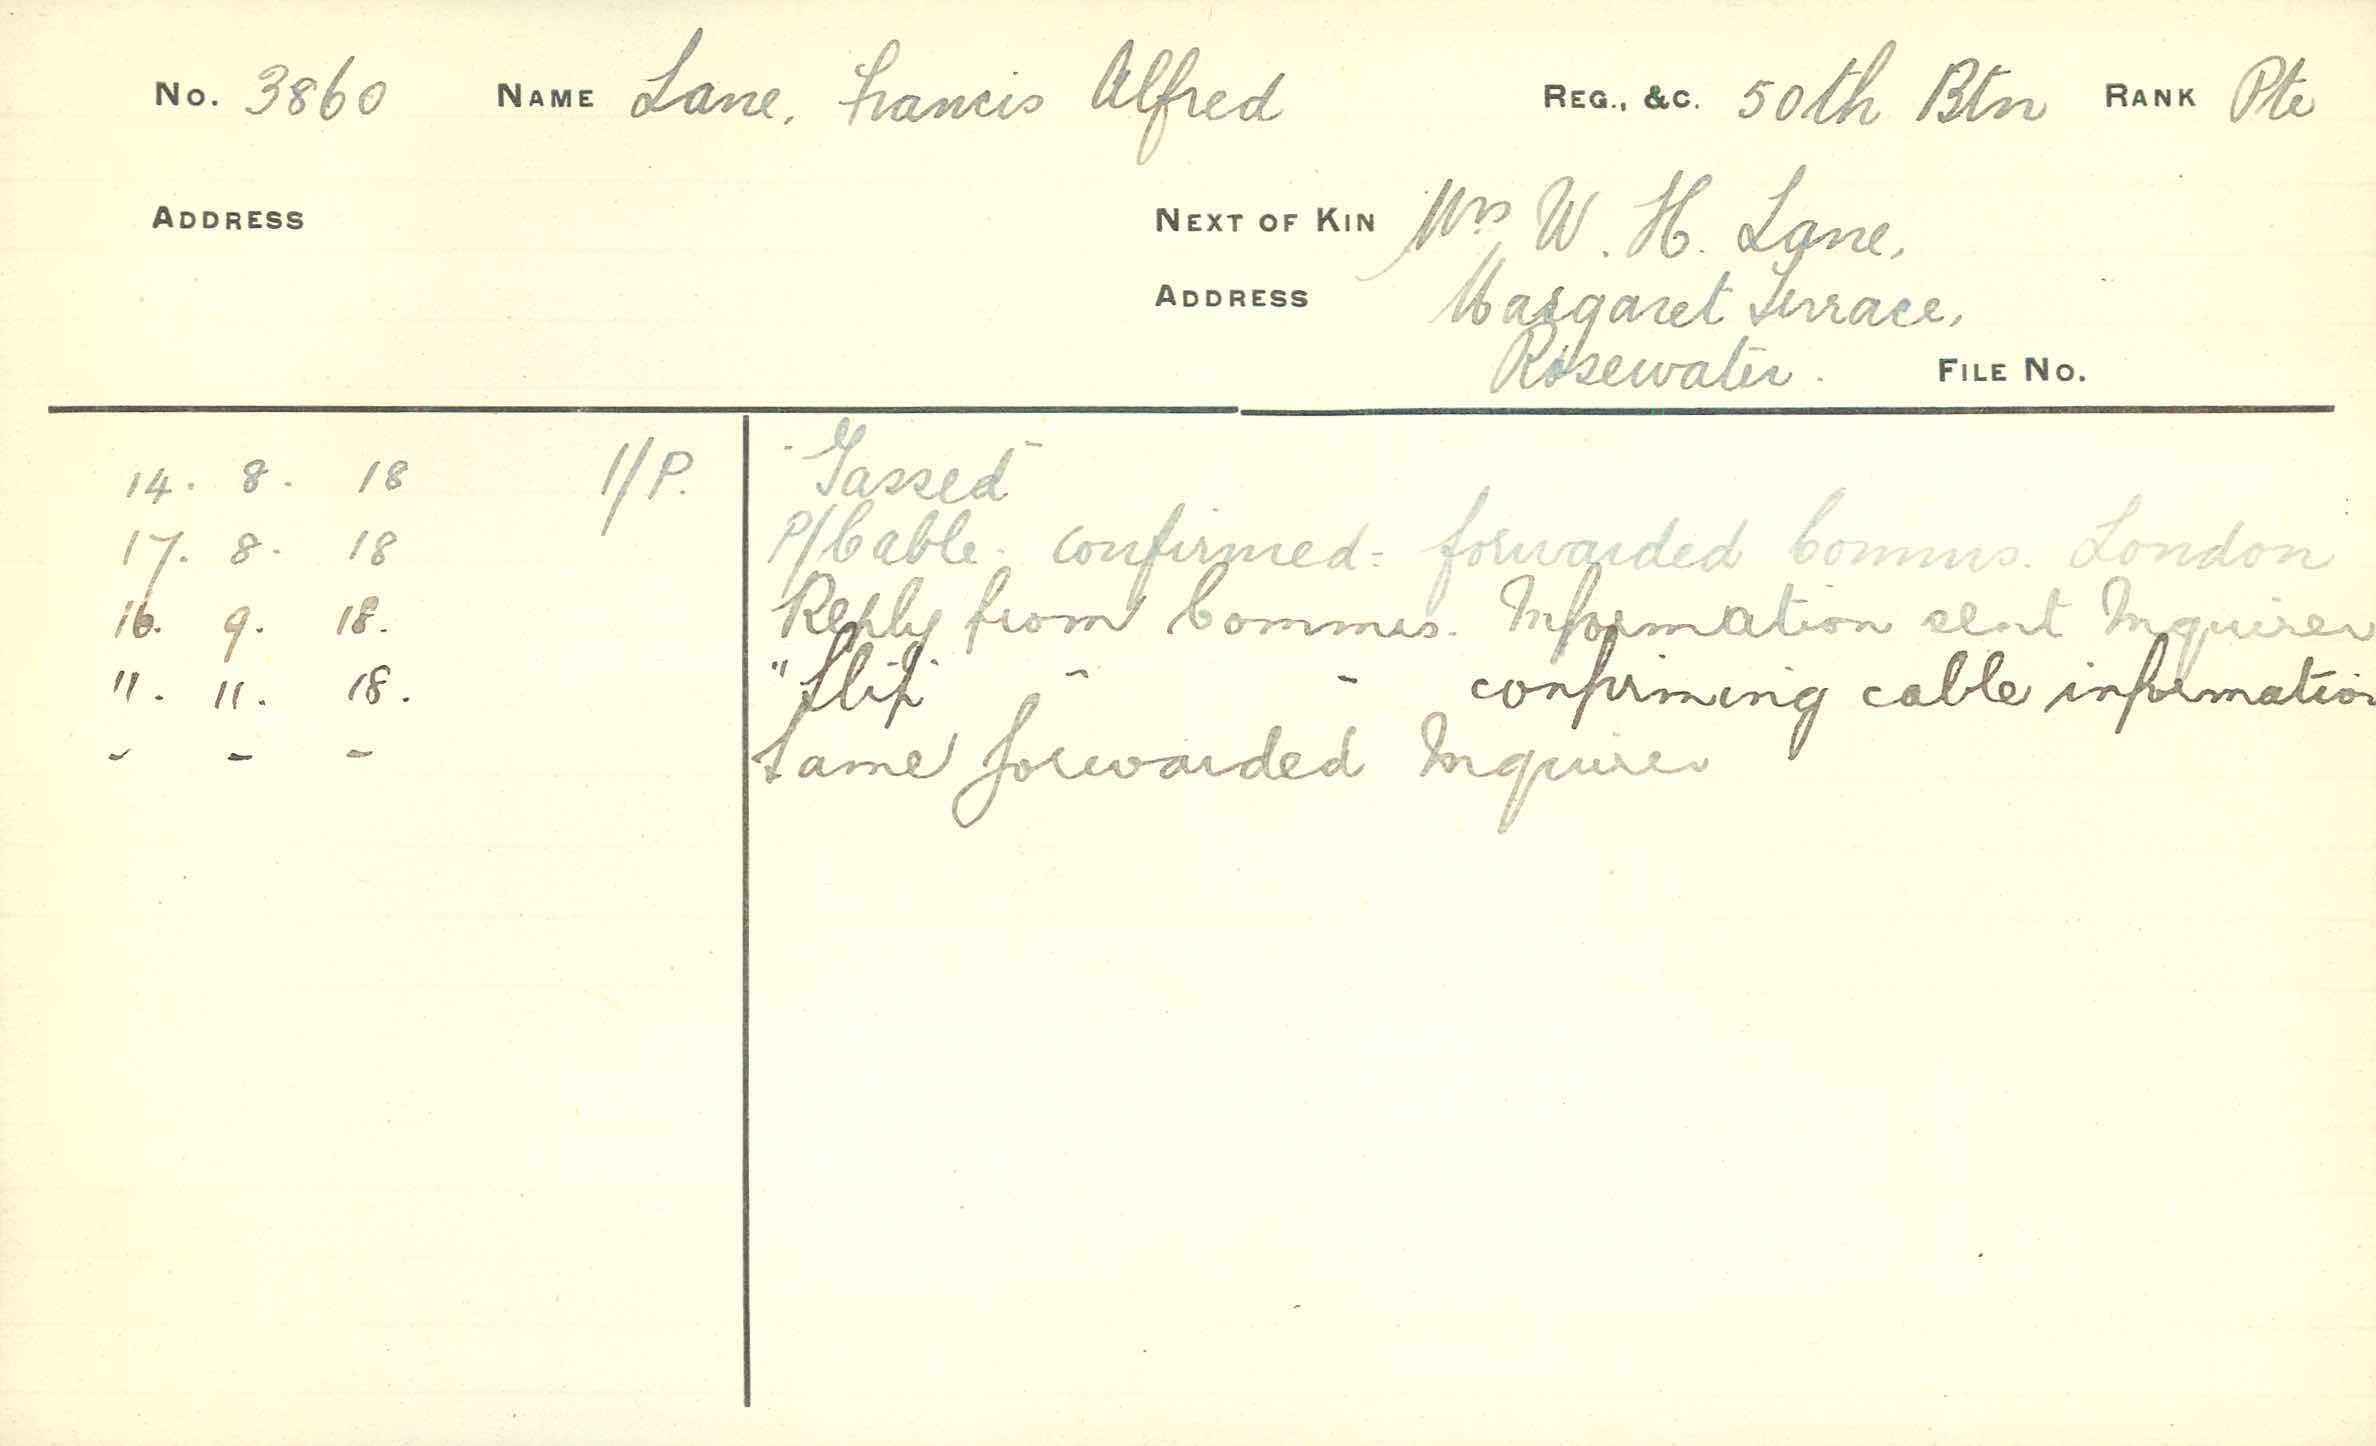 No. 3860 NAME Lane, Francis Alfred REG., &C. 50th Btn RANK Pte
ADDRESS NEXT OF KIN Mrs W. H. Lane,
ADDRESS Margaret Terrace,
Rosewater. FILE No.
14. 8. 18 I/P. "Gassed"
17. 8. 18 P/Cable. confirmed = forwarded Comms. London
16. 9. 18. Reply from Commrs. Information sent Inquirer
11. 11. 18. "Slip" " " confirming cable information
" " " Same forwarded Inquirer